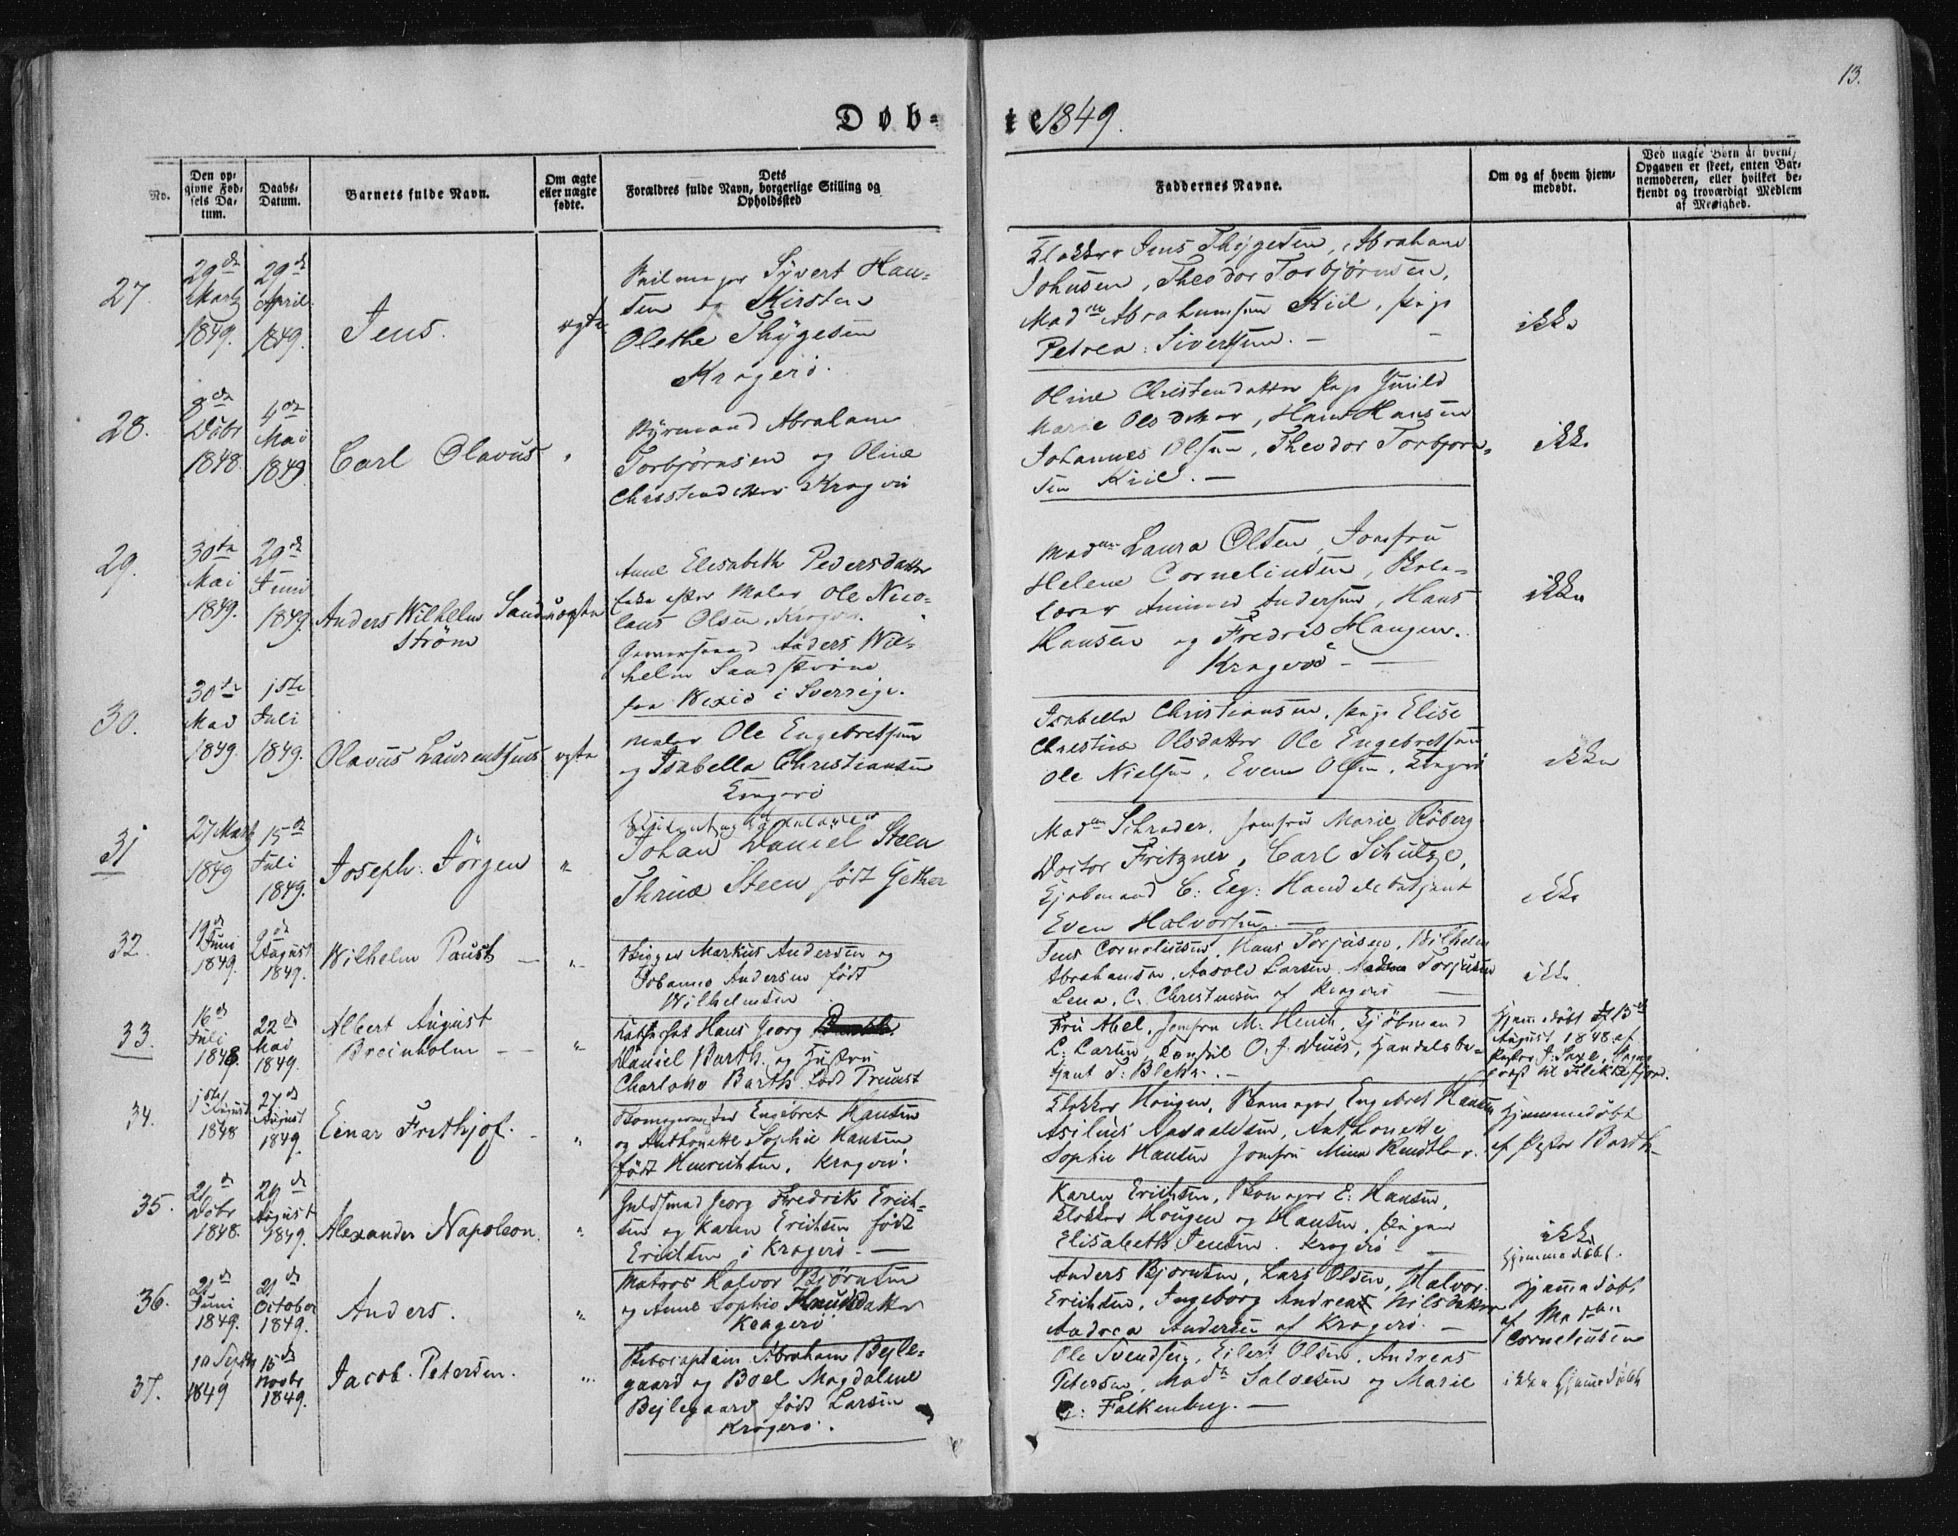 13.
Døb-
te 1849.
No.
Den op-
givne Fød-
sels Da-
tum.
Daabs-
Datum.
Barnets fulde Navn.
Om ægte
eller uægte
fødte.
Dets
Forældres fulde Navn, borgerlige Stilling og
Opholdssted
Faddernes Navne.
Om og af hvem hjem-
medøbt.
Ved uægte Børn af hvem,
Opgaven er skeet, enten Bar-
nemoderen, eller hvilket be-
kjendt og troværdigt Medlem
af Menighed.
27.
29de
Martz
1849.
29de
April
1849.
Jens.
ægte
Syvert Han-
sen og Kirsten
Olethe Thygesen
Kragerö.
Klokker Jens Thygesen, Abraham
Johnsen, Theodor Torbjørnsen,
Madme Abrahamsen Kiil, pige
Petrea Sivertsen. —
ikke
28.
8de
Dcbr
1848.
4de
Mai
1849
Carl Olavus
"
Byemand Abraham
Torbjørnsen og Oline
Christendatter Kragerö
Oline Christendatter pige Gunild
Marie Olsdatter, Hans Hansen
Johannes Olsen, Theodor Torbjørn-
sen Kiil. —
ikke
29.
30te
Mai
1849.
29de
Juni
1849.
Anders Wilhelm Sand-
ström
uægte
Anne Elisabeth Pedersdatter
Enke efter Maler Ole Nico-
laus Olsen, Kragerö.
Anders Wil-
helm Sandström
fra Wexiö i Sverrige.
Madme Laura Olsen, Jomfru
Helene Corneliusen, Skole-
lærer Amund Andersen, Hans
Hansen og Fredrik Haugen.
Kragerö —
ikke
30.
30te
Mai
1849.
1ste
Juli
1849.
Olavus Laurentsius
ægte
Maler Ole Engebretsen
og Isabella Christiansen
Kragerö
Isabella Christiansen, pige Elise
Christine Olsdatter Ole Engebretsen
Ole Nielsen, Even Olsen, Kragerö
ikke
31
27 Mart
1849
15de
Juli
1849.
Joseph Jörgen
"
Johan Daniel Steen
Thrine Steen født Gether
Madme Schrader, Jomfru Marie Röberg
Doctor Fritzner, Carl Schulze,
Kjøbmand C: Eeg: Handelsbetjent
Even Halvorsen. —
ikke
32.
19de
Juni
1849.
9de
August
1849.
Wilhelm Paust —
"
Ligger Markus Andersen og
Johanne Andersen født
Wilhelmsen
Jens Corneliusen, Hans Torjusen, Wilhelm
Abrahamsen, Aasold Larsen, Madme Torjusen
Lena C. Christensen af Kragerö —
ikke
33.
16de
Juli
1848.
22de
Mai
1849.
Albert August
Breinholm —
"
Hans Georg
Daniel Barth og Hustru
Charlotte Barth født Trumst
Fru Abel, Jomfru M. Heuch, Kjöbmand
L. Larsen, Konsul O. J. Duus, Handelsbe-
tjent T. Blehr. —
Hjemmedöbt d. 13de
August 1848 af
Pastor J: Saxe, Sogne
præst til Flekkefjord.
34.
1ste August
1848
27de
August
1849.
Einar Frithjof. —
"
Skomagermester Engebret Hansen
og Anthonette Sophie Hansen
født Henrichsen, Kragerö.
Klokker Hougen, Skomager Engebret Hansen
Asilius Aasaldsen, Anthonette
Sophie Hansen Jomfru Mina Rendtler.
Hjemmedöbt
af Pastor Barth
35.
21de
Dcbr
1848.
29de
August
1849.
Alexander Napoleon.
"
Guldsmed Georg Fredrik Erich-
sen og Karen Erichsen født
Erichsen i Kragerö. —
Karen Erichsen, Skomager E. Hansen,
Klokker Hougen og Hansen, pigen
Elisabeth Jensen. Kragerö —
ikke
hjemmedöbt.
36.
21de
Juni
1849.
21de
October
1849.
Anders.
"
Matros Halvor Björnsen
og Anne Sophie Knudsdatter
Kragerö
Anders Bjørnsen, Lars Olsen, Halvor
Erichsen, Ingeborg Andrea Nilsdatter
Andrea Andersen af Kragerö. —
Hjemmedöbt
af Madmen
Corneliusen
37.
10 Septbr
1849
15de
Novbr
1849.
Jacob Petersen.
"
Skibscaptain Abraham Bejle-
gaard og Boel Magdalene
Bejlegaard født Larsen
Kragerö.
Ole Svendsen, Eilert Olsen, Andreas
Petersen, Made Salvesen og Marie
C: Falkenberg. —
ikke hjemmedöbt